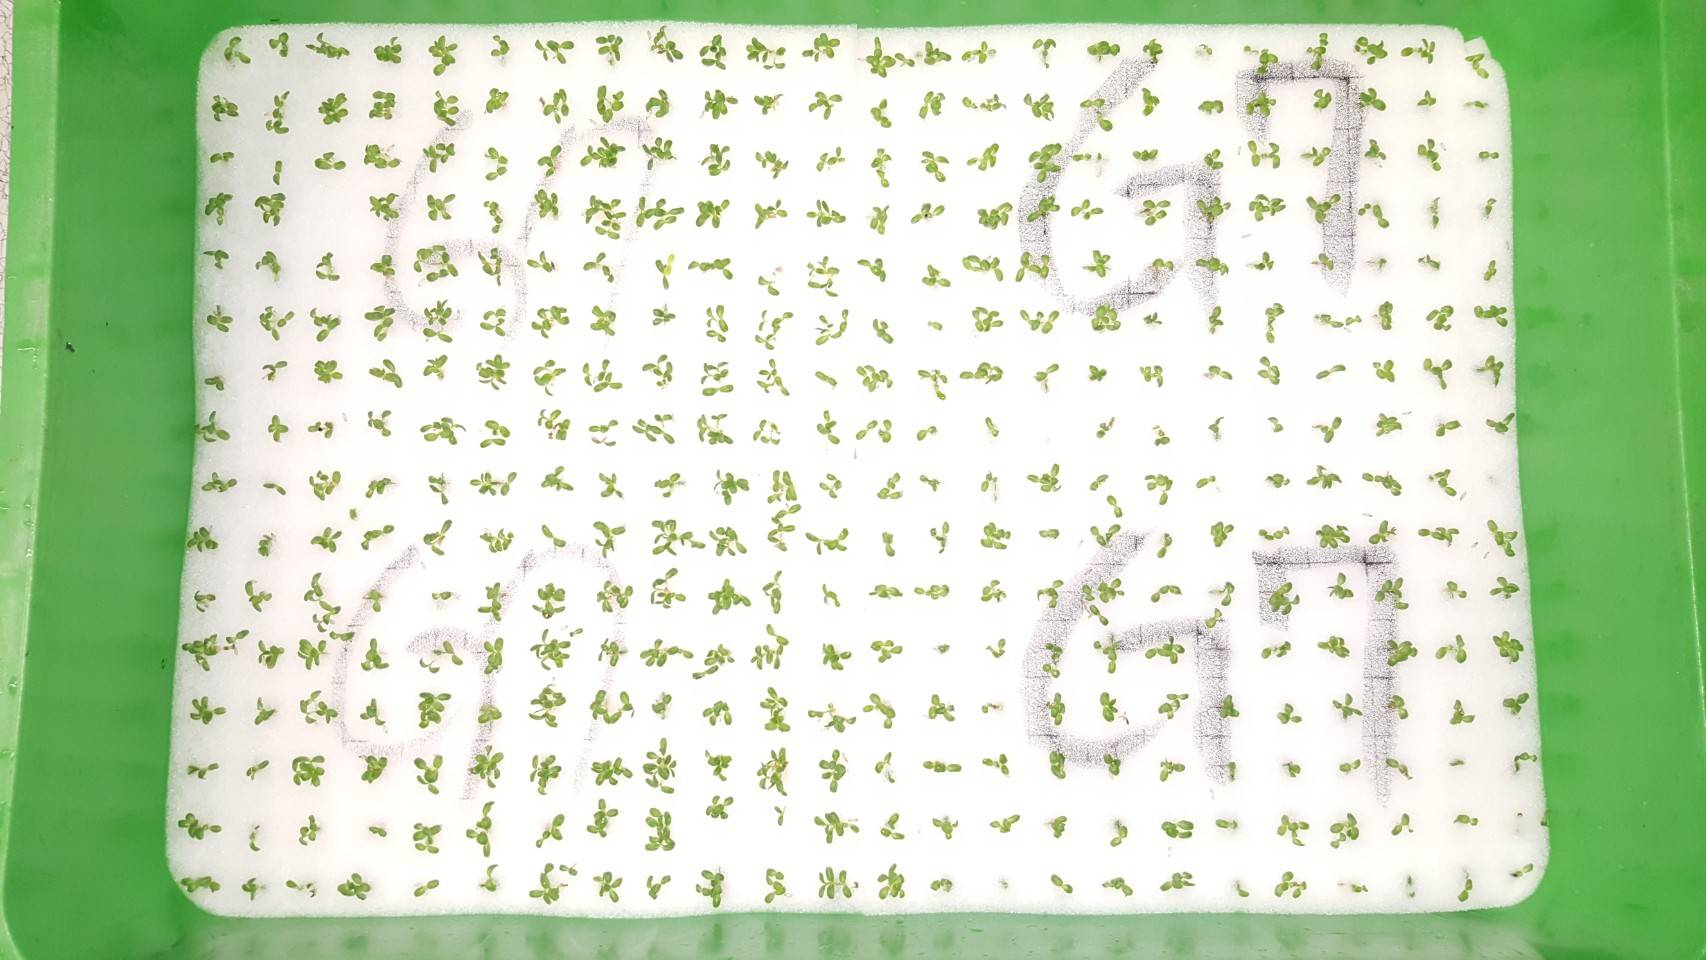 G7 G7
G7 G7